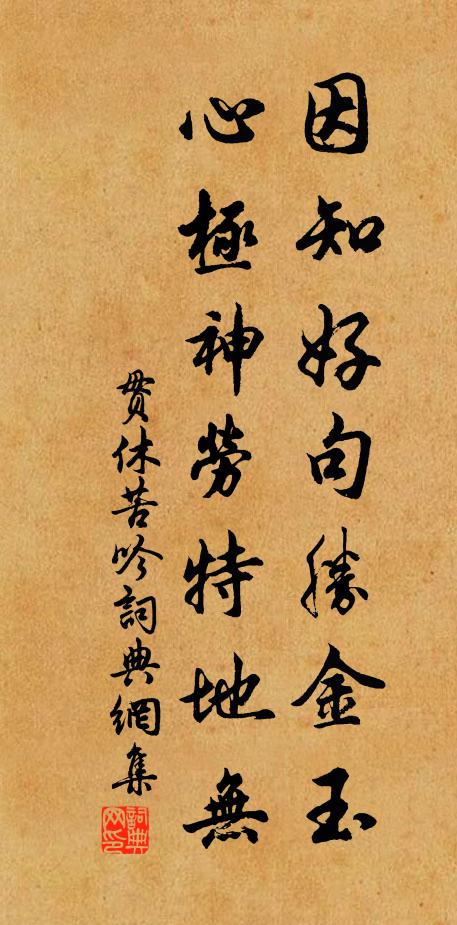 因知好句勝金玉
心極神勞特地無
貫休苦吟詞典網集
詞典网印